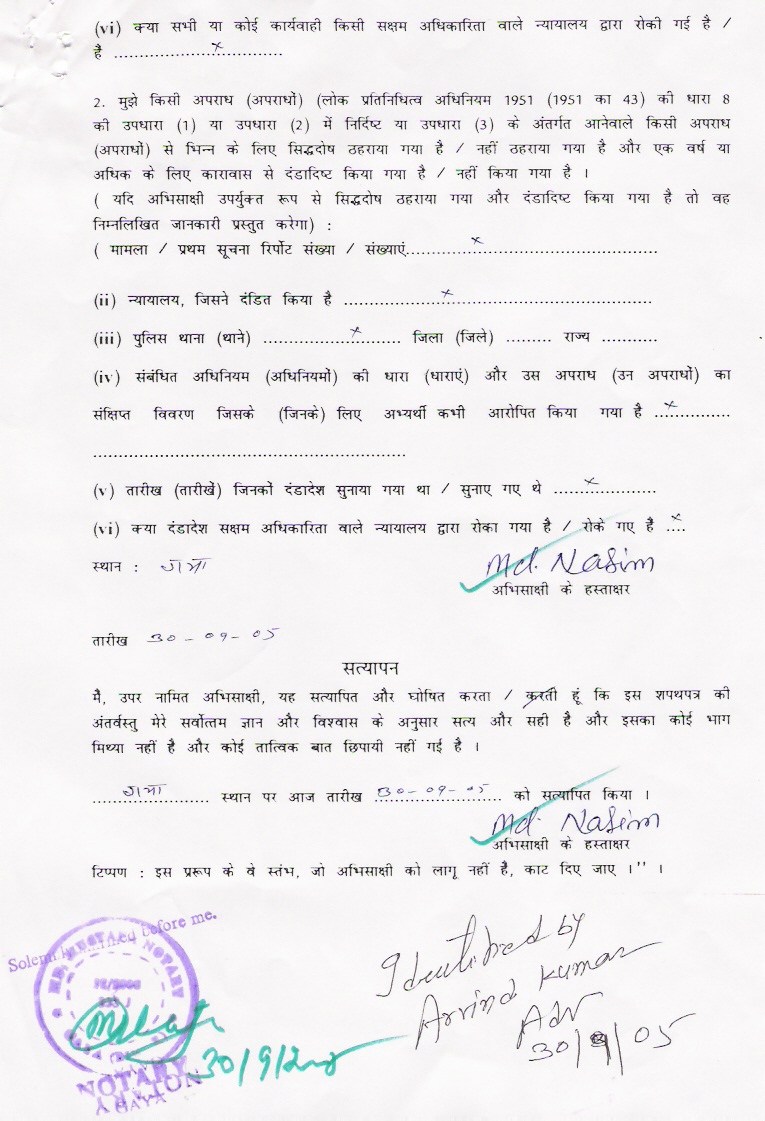 (vi) क्या सभी या कोई कार्यवाही किसी सक्षम अधिकारिता वाले न्यायालय द्वारा रोकी गई है /
है .................x................
2. मुझे किसी अपराध (अपराधों) (लोक प्रतिनिधित्व अधिनियम 1951 (1951 का 43) की धारा 8
की उपधारा (1) या उपधारा (2) में निर्दिष्ट या उपधारा (3) के अंतर्गत आनेवाले किसी अपराध
(अपराधों) से भिन्न के लिए सिद्धदोष ठहराया गया है / नहीं ठहराया गया है और एक वर्ष या
अधिक के लिए कारावास से दंडादिष्ट किया गया है / नहीं किया गया है ।
( यदि अभिसाक्षी उपर्युक्त रूप से सिद्धदोष ठहराया गया और दंडादिष्ट किया गया है तो वह
निम्नलिखित जानकारी प्रस्तुत करेगा) :
( मामला / प्रथम सूचना रिर्पोट संख्या / संख्याएं.............x..................................
(ii) न्यायालय, जिसने दंडित किया है ....................x........................................
(iii) पुलिस थाना (थाने) .................x......... जिला (जिले) ......... राज्य ...........
(iv) संबंधित अधिनियम (अधिनियमों) की धारा (धाराएं) और उस अपराध (उन अपराधों) का
संक्षिप्त विवरण जिसके (जिनके) लिए अभ्यर्थी कभी आरोपित किया गया है ...x............
.............................................................
(v) तारीख (तारीखें) जिनकों दंडादेश सुनाया गया था / सुनाए गए थे .......x.............
(vi) क्या दंडादेश सक्षम अधिकारिता वाले न्यायालय द्वारा रोका गया है / रोके गए है ..x..
स्थान : गया Md. Nasim
अभिसाक्षी के हस्ताक्षर
तारीख 30-09-05
सत्यापन
मैं, उपर नामित अभिसाक्षी, यह सत्यापित और घोषित करता / करती हूं कि इस शपथपत्र की
अंतर्वस्तु मेरे सर्वोत्तम ज्ञान और विश्वास के अनुसार सत्य और सही है और इसका कोई भाग
मिथ्या नहीं है और कोई तात्विक बात छिपायी नहीं गई है ।
गया स्थान पर आज तारीख 30-09-05 को सत्यापित किया ।
Md. Nasim
अभिसाक्षी के हस्ताक्षर
टिप्पण : इस प्ररूप के वे स्तंभ, जो अभिसाक्षी को लागू नहीं है, काट दिए जाए ।'' ।
before me.
NOTARY
GAYA
Identified by
Arvind Kumar
Adv
30/9/05